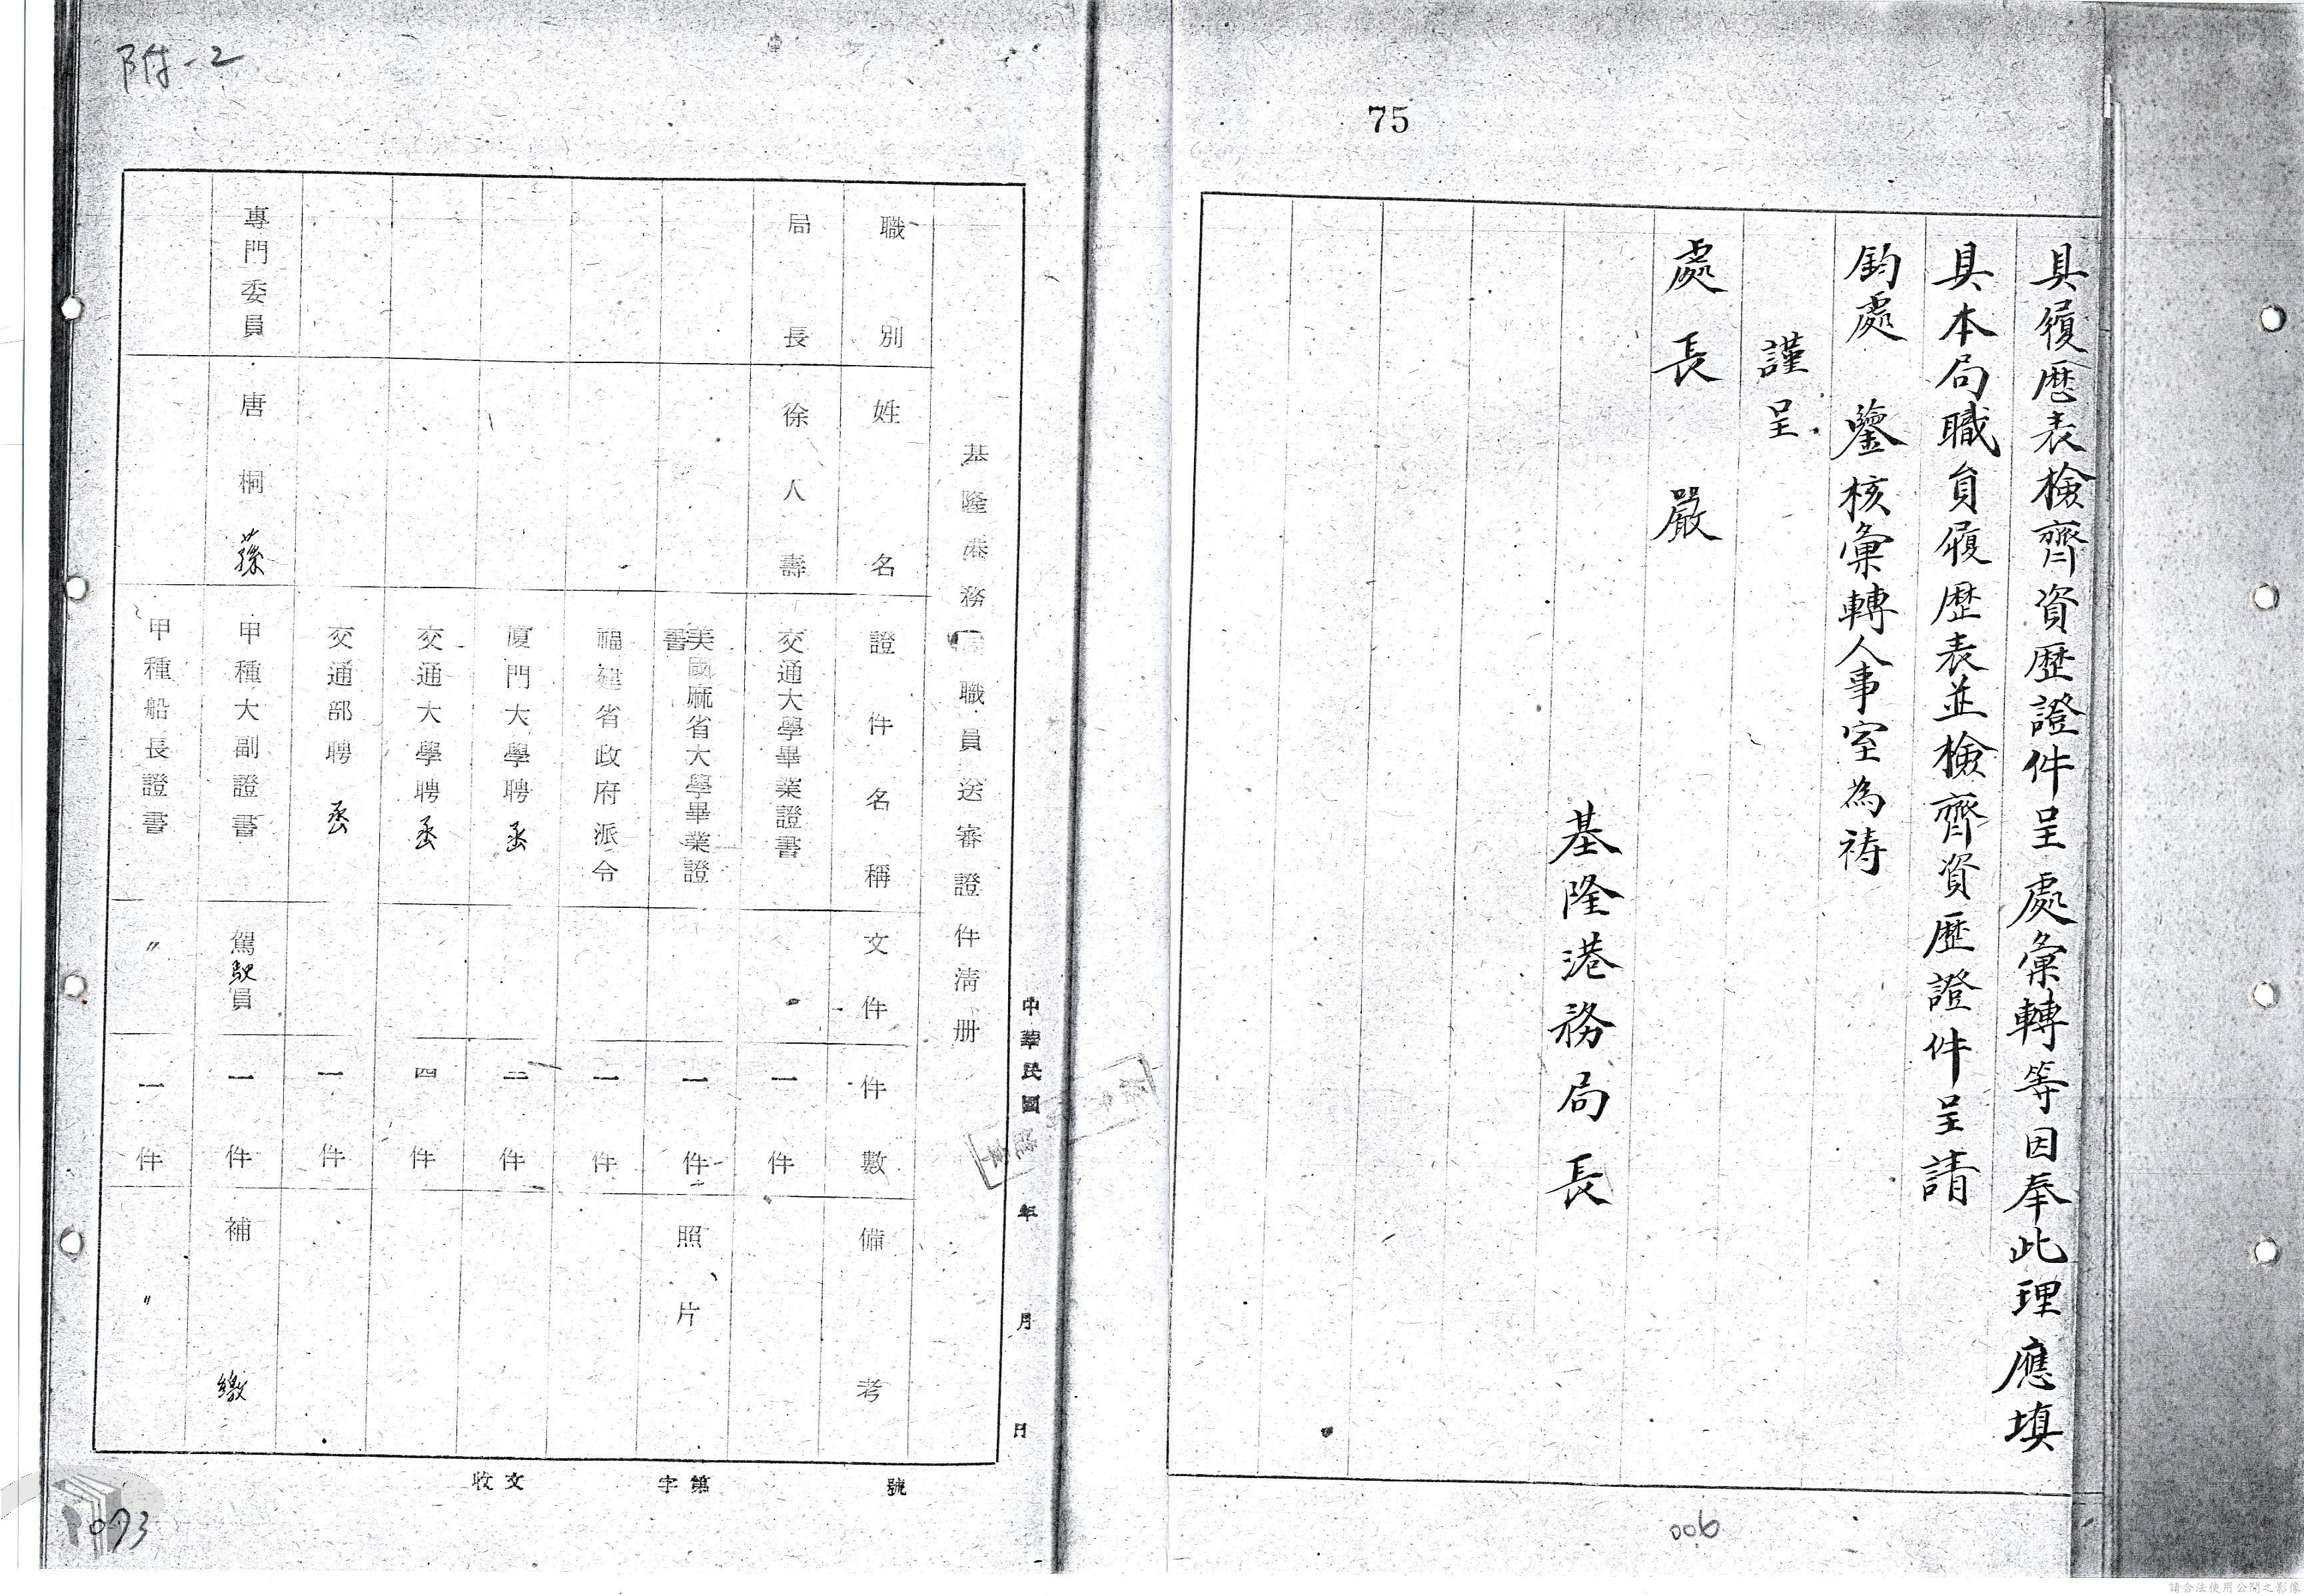 75
具履歷表檢齊資歷證件呈處彙轉等因奉此理應填
具本局職員履歷表並檢齊資歷證件呈請
鈞處 鑒核彙轉人事室為禱
謹呈
處長 嚴
基隆港務局長
006
附-2
中華民國 年 月 日
基隆港務局職員送審證件清册
職別 姓名 證件名稱 文件 件數 備考
局長 徐人壽 交通大學畢業證書 一件
美國麻省大學畢業證書 一件 照片
福建省政府派令 一件
廈門大學聘函 二件
交通大學聘函 四件
交通部聘函 一件
專門委員 唐桐蓀 甲種大副證書 駕駛員 一件 補繳
甲種船長證書 〃 一件 〃
收文 字第 號
073
請合法使用公開之影像